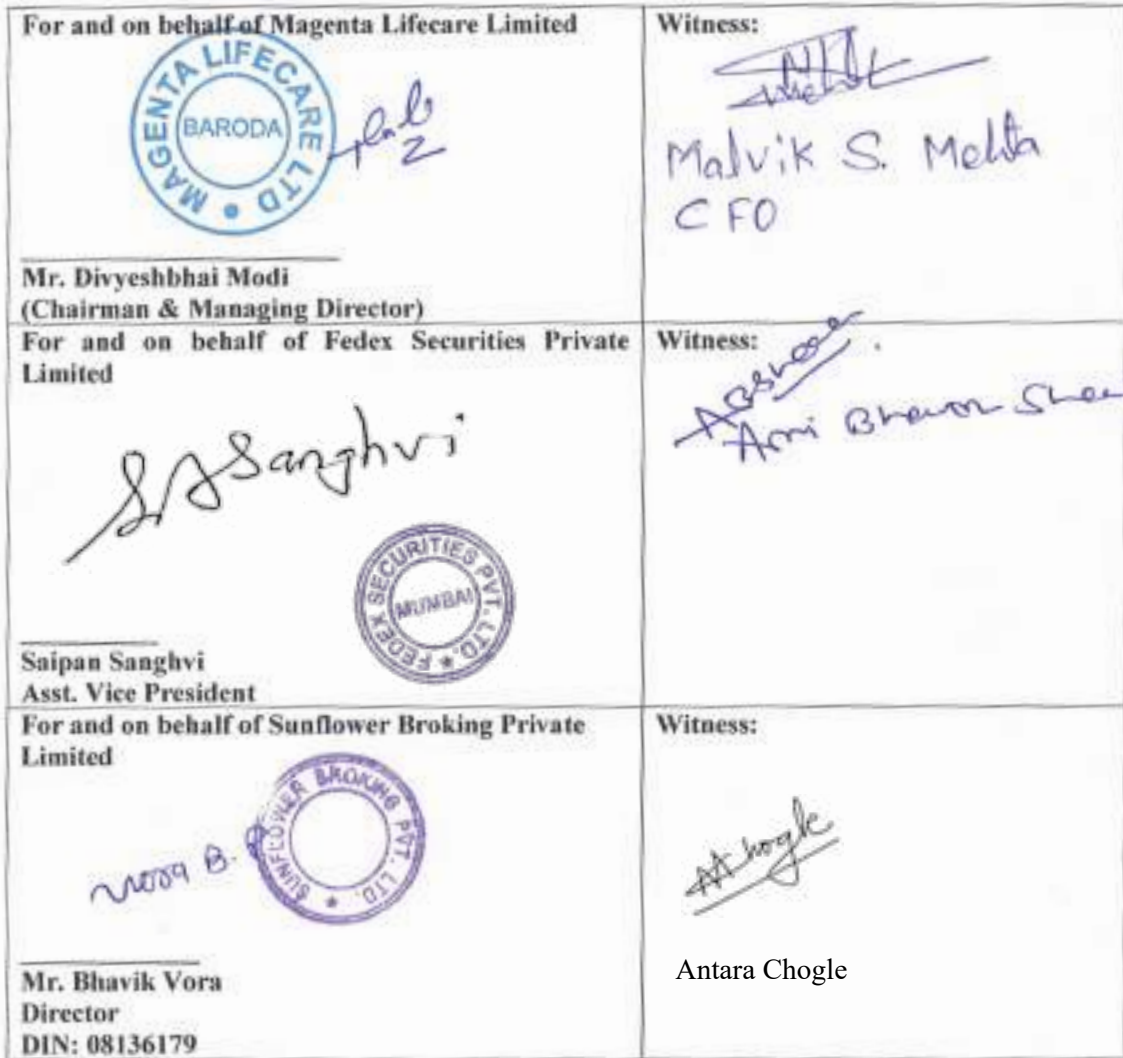 For and on behalf of Magenta Lifecare Limited
MAGENTA LIFECARE LTD
BARODA
Mr. Divyeshbhai Modi
(Chairman & Managing Director)
Witness:
Malvik S. Mehta
CFO
For and on behalf of Fedex Securities Private
Limited
SASanghvi
FEDEX SECURITIES PVT. LTD.
MUMBAI
Saipan Sanghvi
Asst. Vice President
Witness:
Ami
For and on behalf of Sunflower Broking Private
Limited
Vora B.
SUNFLOWER BROKING PVT. LTD.
Mr. Bhavik Vora
Director
DIN: 08136179
Witness:
Antara Chogle